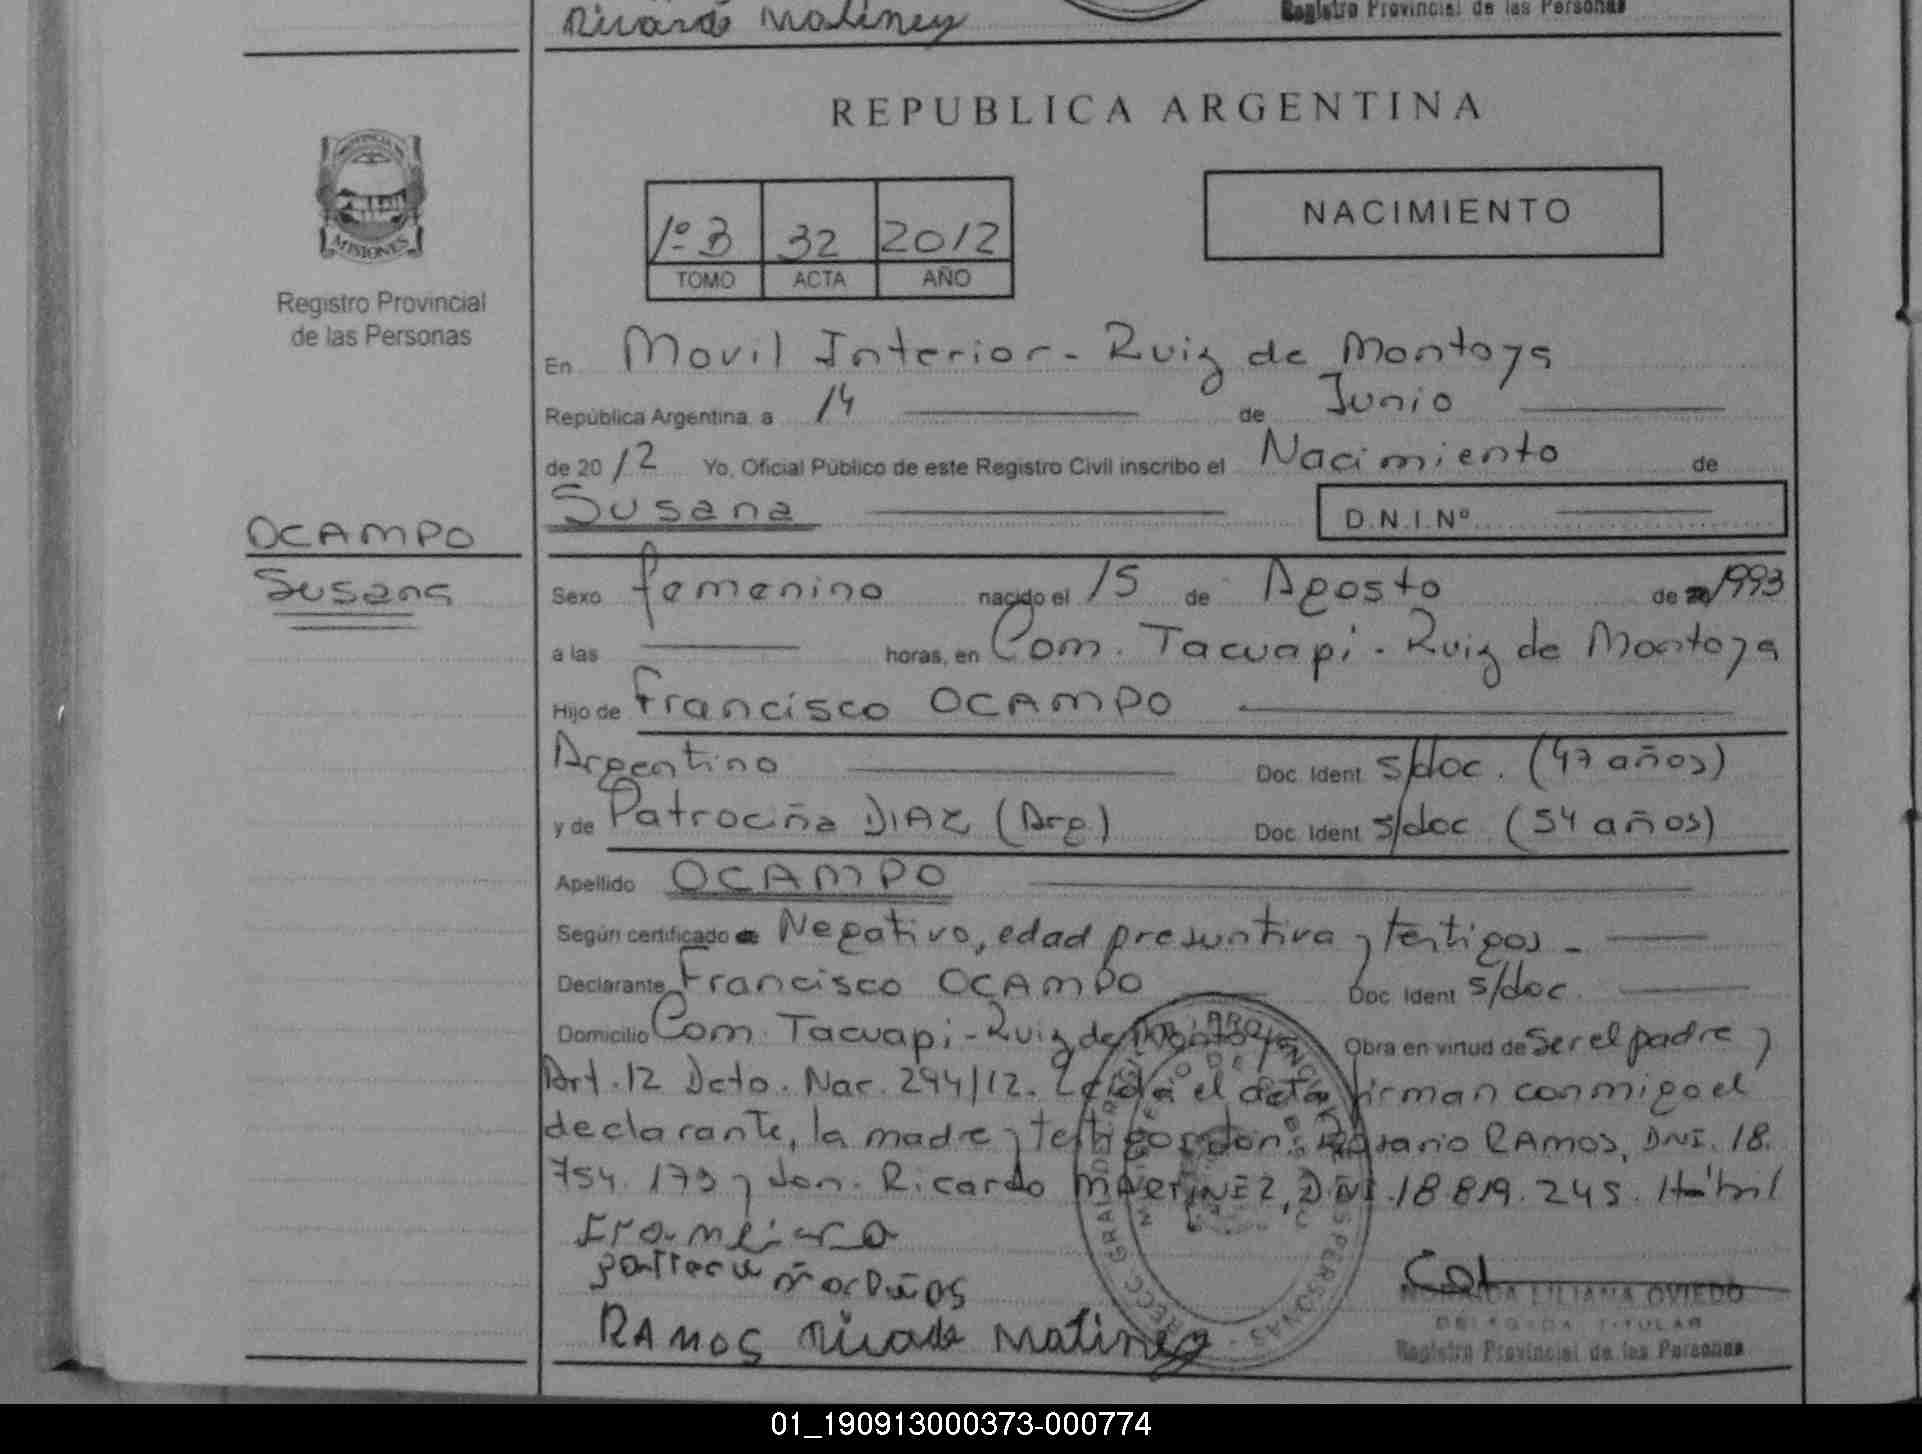 Ricardo Matinez
Registro Provincial de las Personas
REPUBLICA ARGENTINA
PROVINCIA DE
MISIONES
Registro Provincial
de las Personas
1º B 32 2012
TOMO ACTA AÑO
NACIMIENTO
En Movil Interior - Ruiz de Montoya
República Argentina, a 14 de Junio
de 2012 Yo, Oficial Público de este Registro Civil inscribo el Nacimiento de
Susana D.N.I. Nº
OCAMPO
Susana
Sexo femenino nacido el 15 de Agosto de 1993
a las horas, en Com. Tacuapi - Ruiz de Montoya
Hijo de Francisco OCAMPO
Argentino Doc. Ident s/doc. (47 años)
y de Patrociña DIAZ (Arg.) Doc. Ident s/doc (54 años)
Apellido OCAMPO
Según certificado Negativo, edad presuntiva y testigos -
Declarante Francisco OCAMPO Doc. Ident s/doc.
Domicilio Com. Tacuapi - Ruiz de Montoya Obra en virtud de Ser el padre y
Art. 12 Dcto. Nac. 294/12. Leida el acta firman conmigo el
declarante, la madre y testigos don Rosario RAMOS, DNI. 18.
754.173 y don. Ricardo MARTINEZ, DNI. 18.819.245. Hábil
RAMOS Ricardo Matinez
LILIANA OVIEDO
DELEGADA TITULAR
Registro Provincial de las Personas
01_190913000373-000774